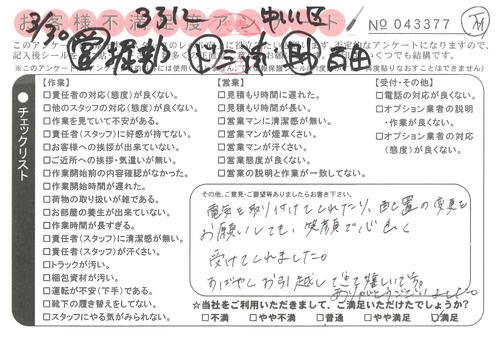 お客様不満足度アンケート
3/30 3312 中川区
No 043377
【作業】
□責任者の対応(態度)が良くない。
□他のスタッフの対応(態度)が良くない。
□作業を見ていて不安がある。
□責任者(スタッフ)に好感が持てない。
□お客様への挨拶が出来ていない。
□ご近所への挨拶・気遣いが無い。
□作業開始前の内容確認がなかった。
□作業開始時間が遅れた。
□荷物の取り扱いが雑である。
□お部屋の養生が出来ていない。
□作業時間が長すぎる。
□責任者(スタッフ)に清潔感が無い。
□責任者(スタッフ)が汗くさい。
□トラックが汚い。
□梱包資材が汚い。
□運転が不安(下手)である。
□靴下の履き替えをしてない。
□スタッフにやる気がみられない。
【営業】
□見積もり時間に遅れた。
□見積もり時間が長い。
□営業マンに清潔感が無い。
□営業マンが煙草くさい。
□営業マンが汗くさい。
□営業態度が良くない。
□営業の説明と作業が一致してない。
【受付・その他】
□電話の対応が良くない。
□オプション業者の説明
・作業が良くない。
□オプション業者の対応
(態度)が良くない。
●チェックリスト
その他、ご意見・ご要望等ありましたらお書き下さい。
電気を取り付けてくれたり、配置の変更を
お願いしても、笑顔で心良く
受けてくれました。
すばやくお引越しできて嬉しいです。
ありがとうございました。
☆当社をご利用いただきまして、ご満足いただけたでしょうか?
□不満 □やや不満 □普通 □やや満足 □満足